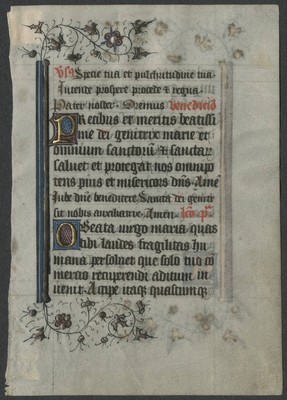 Vs Specie tua et pulchritudine tua
Intende prospere procede et regna
Pater noster. Oremus benedictio
Precibus et meritis beatissi
me dei genitrix marie et
omnium sanctorū et sanctarū
saluet et protegat nos omnipo
tens pius et misericors dn̄s. Amē
Iube dn̄e benedicere. Sancta dei genitrix
sit nobis auxiliatrix. Amen.
O Beata uirgo maria quas
tibi laudes fragilitas hu
mana persoluet que solo tuo cō
mercio recuperendi aditum in
uenit. Accipe itaq; quascumq;